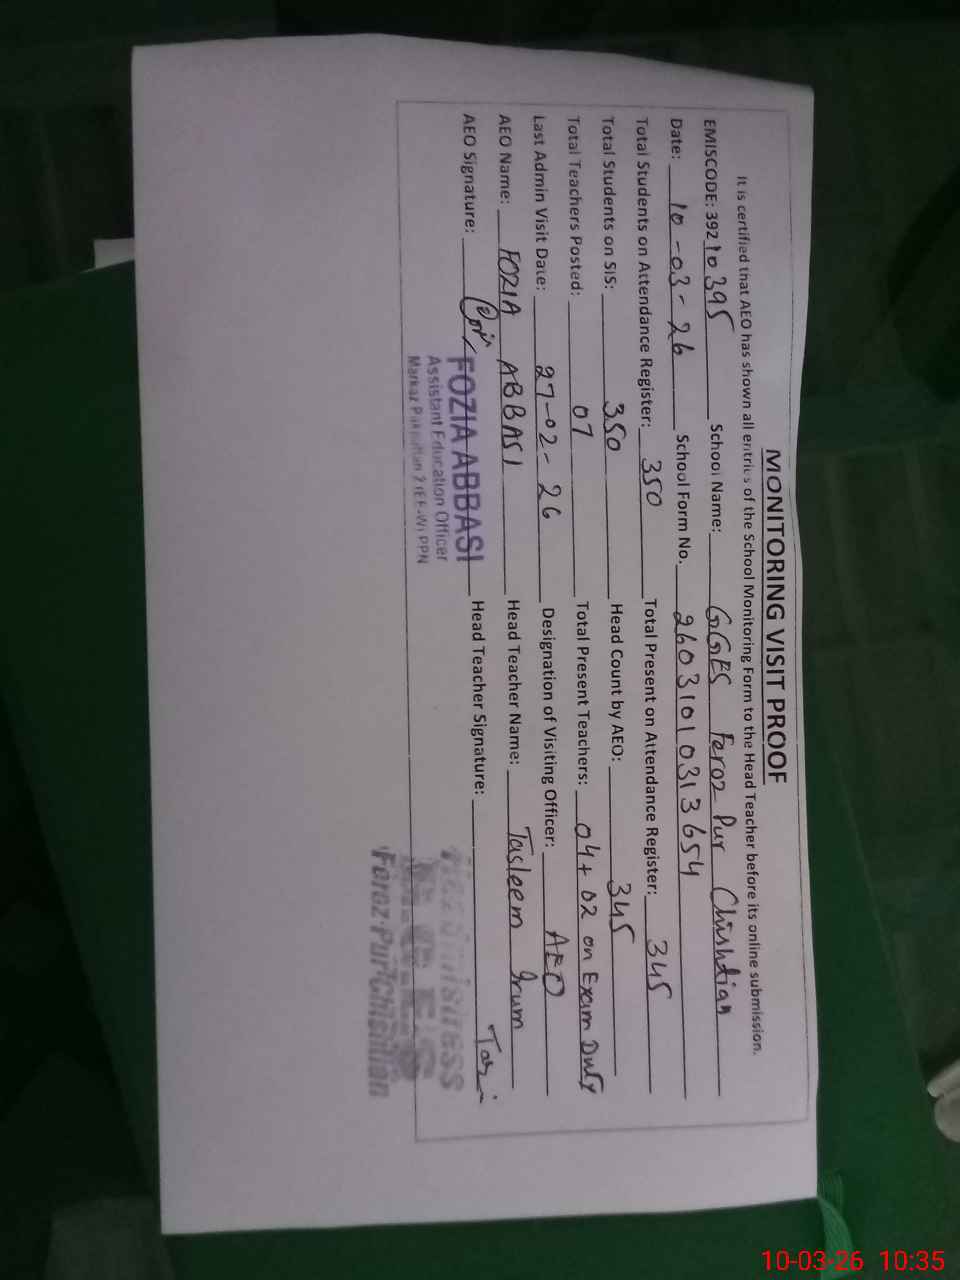 MONITORING VISIT PROOF
It is certified that AEO has shown all entries of the School Monitoring Form to the Head Teacher before its online submission.
EMISCODE: 39210395 School Name: GGES Feroz Pur Chishtian
Date: 10-03-26 School Form No. 26031010313654
Total Students on Attendance Register: 350 Total Present on Attendance Register: 345
Total Students on SIS: 350 Head Count by AEO: 345
Total Teachers Posted: 07 Total Present Teachers: 04+02 on Exam Duty
Last Admin Visit Date: 27-02-26 Designation of Visiting Officer: AEO
AEO Name: FOZIA ABBASI Head Teacher Name: Tasleem Irum
AEO Signature: Head Teacher Signature:
FOZIA ABBASI
Assistant Education Officer
Markaz Pakpattan 2 (EE-W) PPN
Headmistress
Feroz Pur Chishtian
10-03-26 10:35